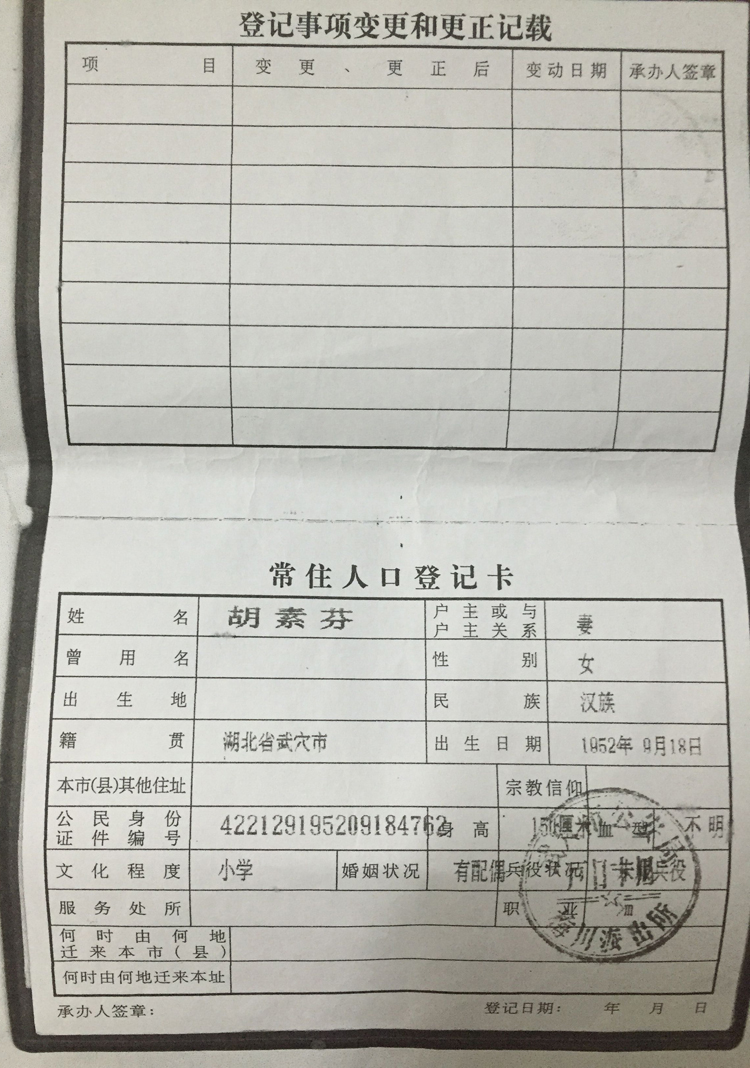 登记事项变更和更正记载
项 目 变更、更正后 变动日期 承办人签章
常住人口登记卡
姓名 胡素芬 户主或与户主关系 妻
曾用名 性别 女
出生地 民族 汉族
籍贯 湖北省武穴市 出生日期 1952年9月18日
本市(县)其他住址 宗教信仰
公民身份证件编号 422129195209184762 身高 150厘米 血型 不明
文化程度 小学 婚姻状况 有配偶 兵役状况 未服兵役
服务处所 职业
何时由何地迁来本市(县)
何时由何地迁来本址
承办人签章: 登记日期: 年 月 日
户口专用
派出所